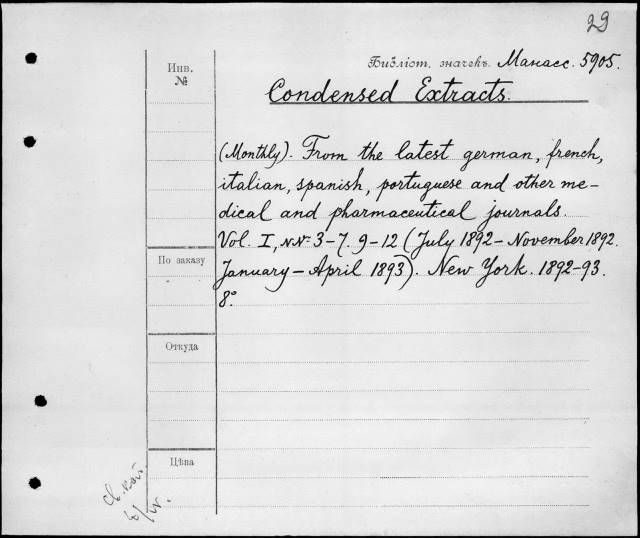 29
Библіот. значекъ Манасс. 5905.
Инв.
№
Condensed Extracts.
(Monthly). From the latest german, french,
italian, spanish, portuguese and other me-
dical and pharmaceutical journals.
Vol. I, NN⁰ 3-7. 9-12 (July 1892-November 1892.
January-April 1893). New York. 1892-93.
8⁰.
По заказу
Откуда
Цѣна